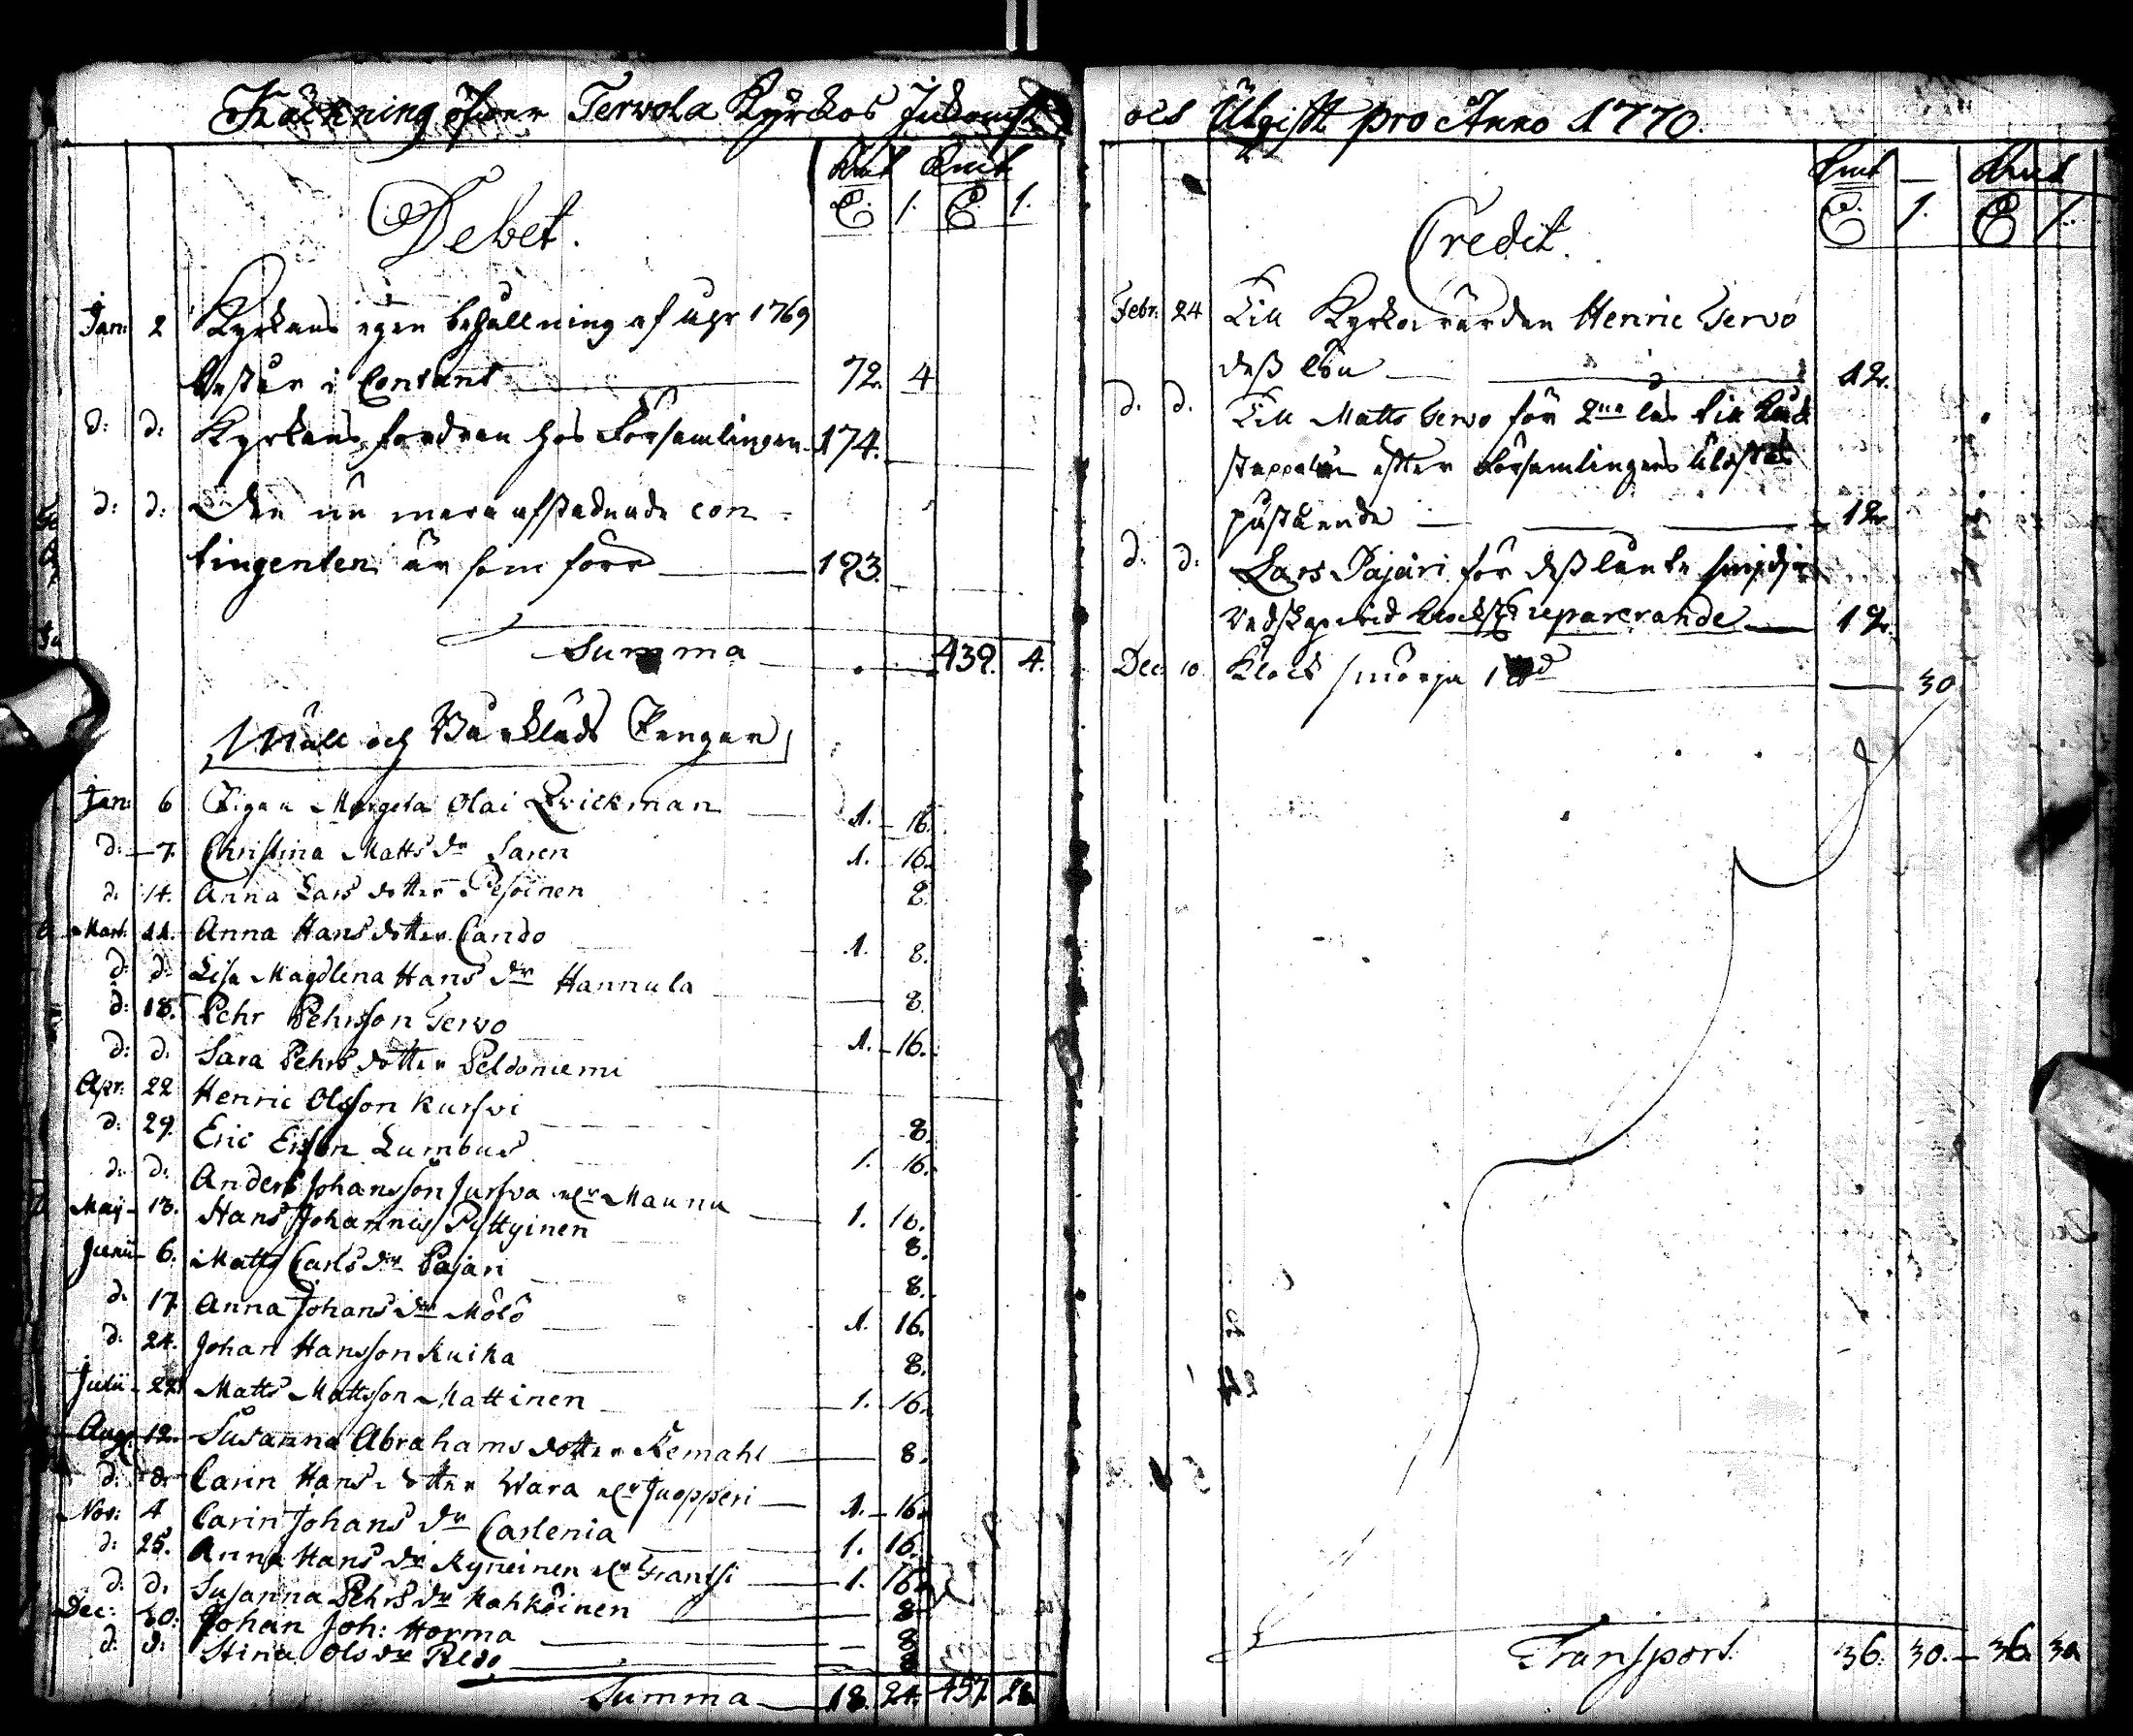 Räckning öfwer Tervola Kyrckos Inkomst
och Utgifft pro Anno 1770.
Debet.
Kmt Kmt
1. 1.
Jan: 2 Kyrkans egen behållning af uhr 1769
består i Contant 72. 4
d: d: Kyrkans fordran hos Församlingen 174.
d: d: Den nu mera afstadnade con-
tingenten är som förr 193.
Summa 439. 4.
Mull och Bårkläds Pengar
Jan: 6 Pigan Margeta Olai Qvickman 1. 16.
d: 7. Christina Matts dr Saren 1. 16.
d. 14. Anna Lars dotter Pesoinen 8.
Mart. 11. Anna Hans dotter Cando 1. 8.
d: d: Lisa Magdlena Hans dr Hannula 8.
d: 18. Pehr Pehrsson Tervo 1. 16.
d: d. Sara Pehrs dotter Peldoniemi
Apr: 22 Henric Olsson Kursvi 8.
d: 29. Eric Ersson Lumbus 1. 16.
d: d. Anders Johansson Jursva elr Maunu 1. 16.
Maij 13. Hans Johannis Pyttyinen 8.
Junii 6. Matts Carls dr Pajari 8.
d. 17. Anna Johans dr Mölö 1. 16.
d. 24. Johan Hansson Kuika 8.
Julii 22 Matts Mattsson Mattinen 1. 16.
Aug. 12. Susanna Abrahams dotter Kemahl 8.
d: d: Carin Hans dotter Wara elr Juopperi 1. 16.
Nov: 4 Carin Johans dr Carlenia 1. 16.
d: 25. Anna Hans dr Kyneinen elr Frantsi 1. 16.
d: d. Susanna Pehrs dr Kahkoinen 8
Dec: 30: Johan Joh: Horma 8
d: d: Stina Ols dr Reso 8
Summa 18. 24. 457. 28
Credit.
Kmt Kmt
1. 1.
Febr: 24 Till Kyrko värden Henric Tervo
dess lön 12.
d. d. Till Matts Tervo för 2ne las
efter Församlingens
påstående 12.
d: d. Lars Pajari för dess
vid reparerande 12.
Dec. 10. Klock smörja 1 30
Transport. 36. 30. 36. 30